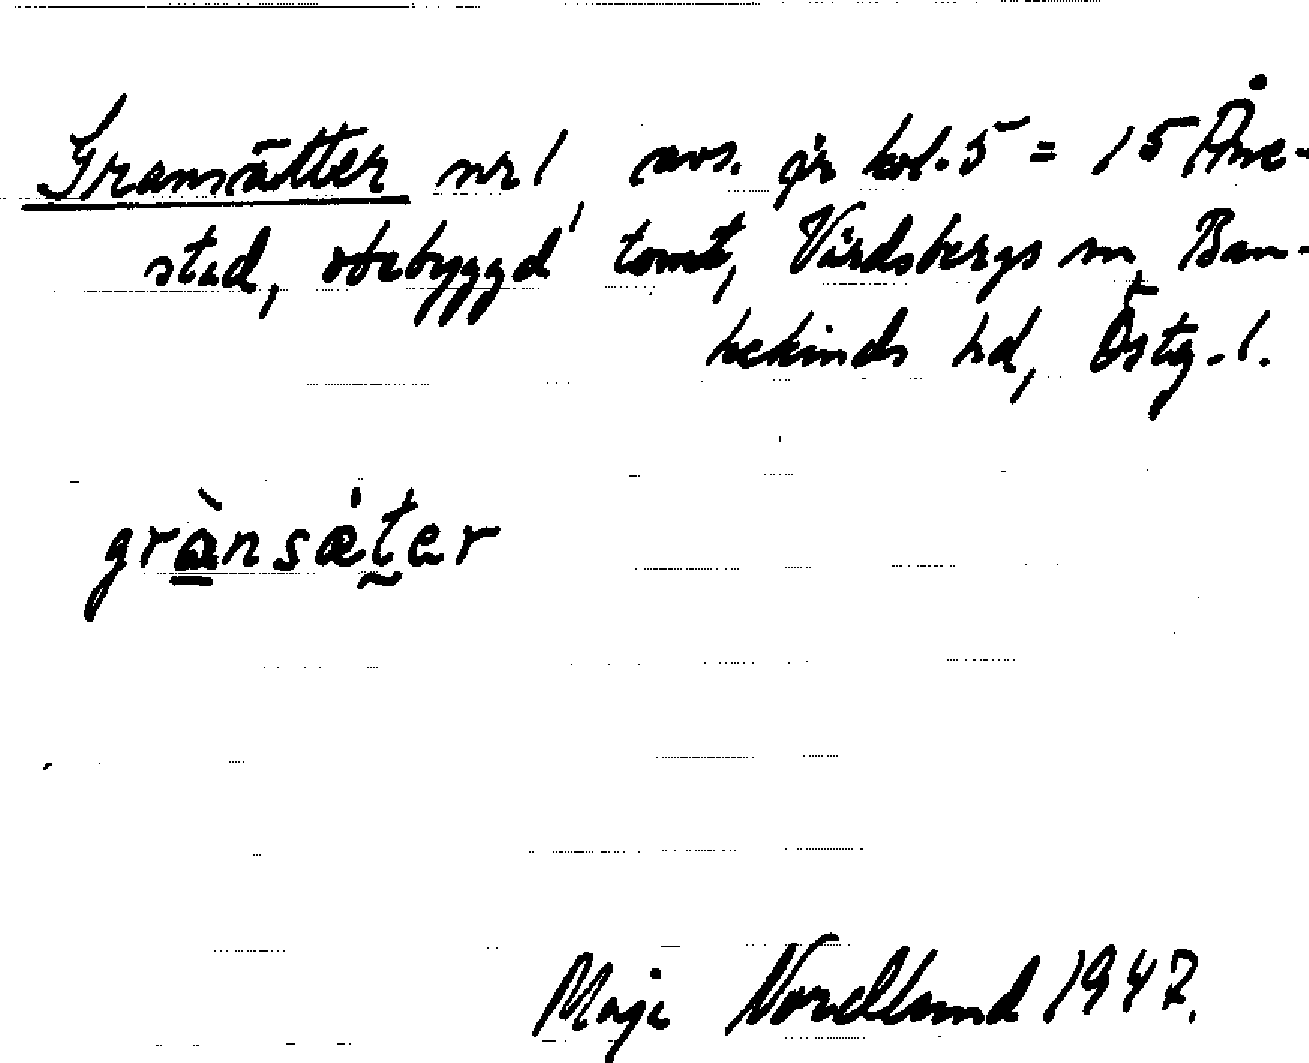 Gransätter nr 1, avs. fr kol. 5 = 15 Åne-
stad, obebyggd tomt, Vårdsbergs sn, Ban-
kekinds hd, Östg. l.
grànsǽter
Maja Nordlund 1947.